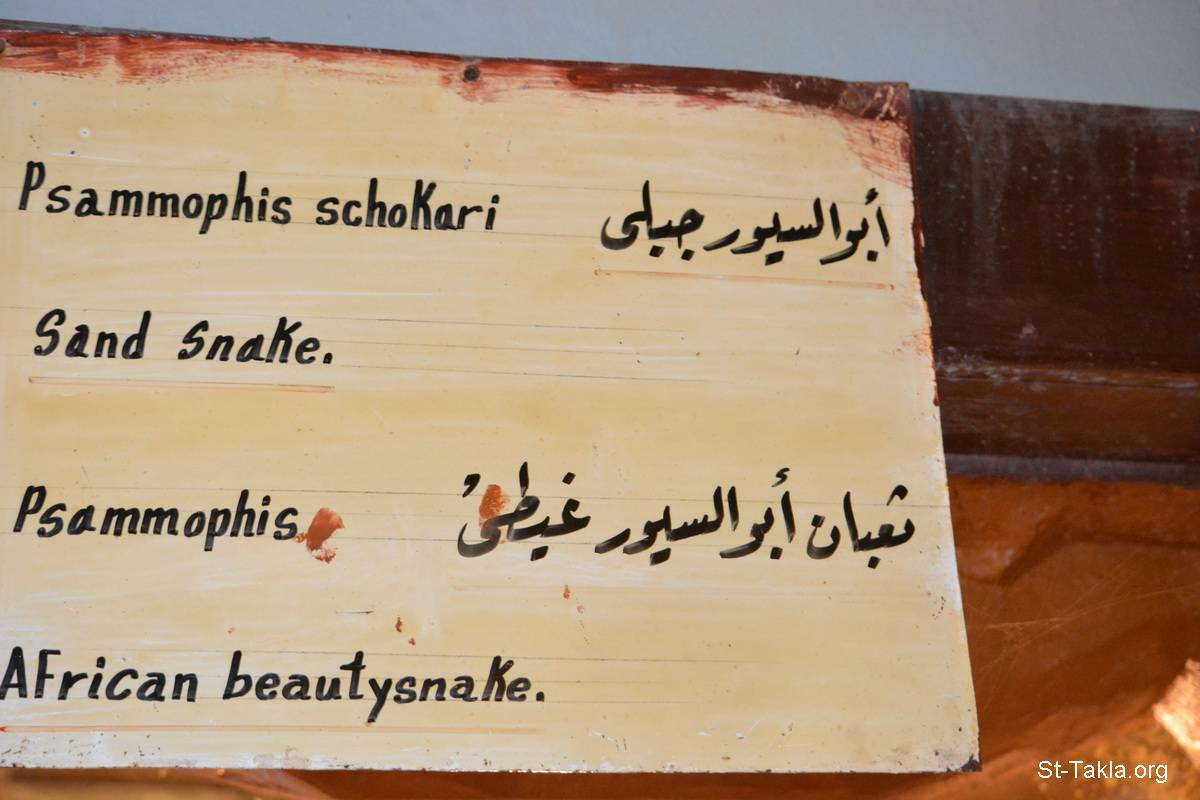 Psammophis schokari أبو السيور جبلى
Sand snake.
Psammophis ثعبان أبو السيور غيطىُ
African beautysnake.
St-Takla.org